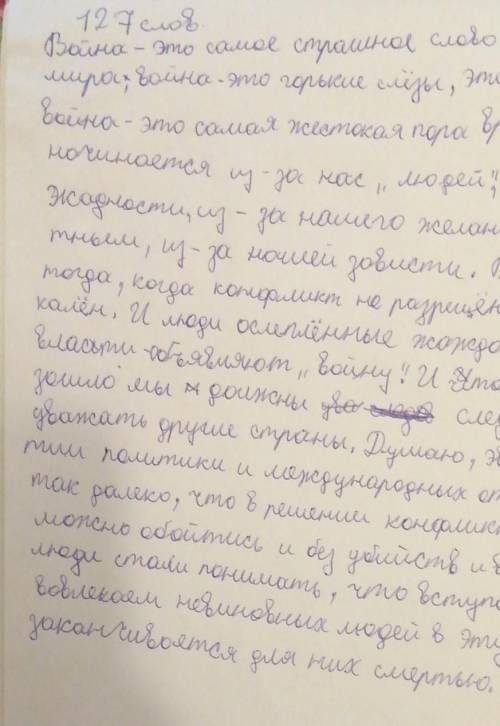 127 слов
Война - это самое страшное слово
мира; война - это горькие слёзы, это
война - это самая жестокая пора вр
начинается из-за нас „людей",
жадности, из-за нашего желан
тным, из-за ношей зависти. В
тогда, когда конфликт не разрещён
кален. И люди ослеплённые жаждо
власьти - объявляют „войну". И что
зошло мы должны след
уважать другие страны. Думаю, э
тии политики и международных от
так далеко, что в решении конфликт
можно обойтись и без убийств и в
люди стали понимать, что вступа
вовлекаем невиновных людей в эту
заканчивоется для них смертью.